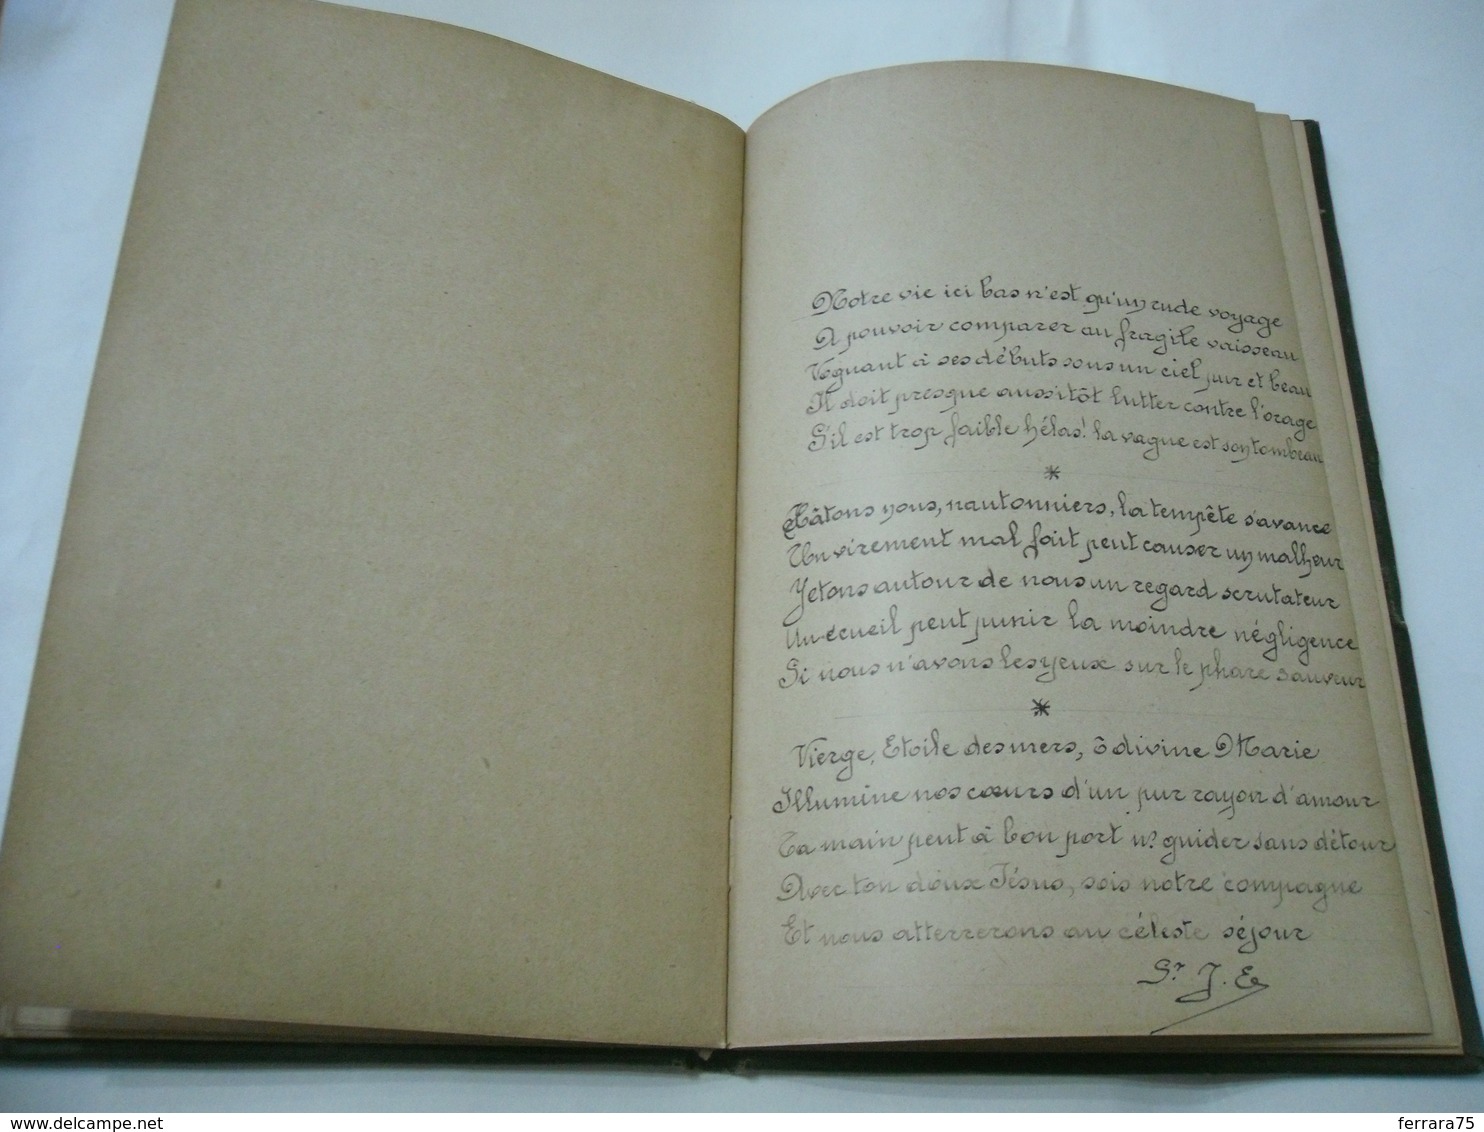 Notre vie ici bas n'est qu'un rude voyage
A pouvoir comparer au fragile vaisseau
Voguant à ses débuts sous un ciel pur et beau
Il doit presque aussitôt lutter contre l'orage
S'il est trop faible hélas! la vague est son tombeau
*
Hâtons nous, nautonniers, la tempête s'avance
Un virement mal fait peut causer un malheur
Jetons autour de nous un regard scrutateur
Un écueil peut punir la moindre négligence
Si nous n'avons les yeux sur le phare sauveur
*
Vierge, Etoile des mers, ô divine Marie
Illumine nos cœurs d'un pur rayon d'amour
Ta main peut à bon port ns guider sans détour
Avec ton doux Jésus, sois notre compagne
Et nous atterrerons au céleste séjour
Sr J. E
delcampe.net
ferrara75